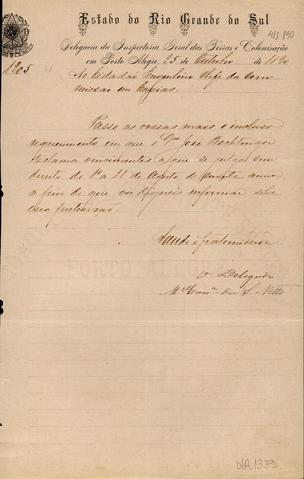 A13.840
Estado do Rio Grande do Sul
Delegacia da Inspectoria Geral das Terras e Colonisação
em Porto Alegre, 25 de Outubro de 1890
Nº 1205
Ao Cidadão Engenheiro Chefe da Com
missão em Caxias
Passo as vossas mãos o incluso
requerimento em que o Dr. José
reclama vencimentos a que se julga com
direito de 1º a 11 de Agosto do corrente anno
a fim de que vos digneis informar sobre
essa pretenção.
Saude e fraternidade
O Delegado
PORTO ALEGRE
DIR 1333